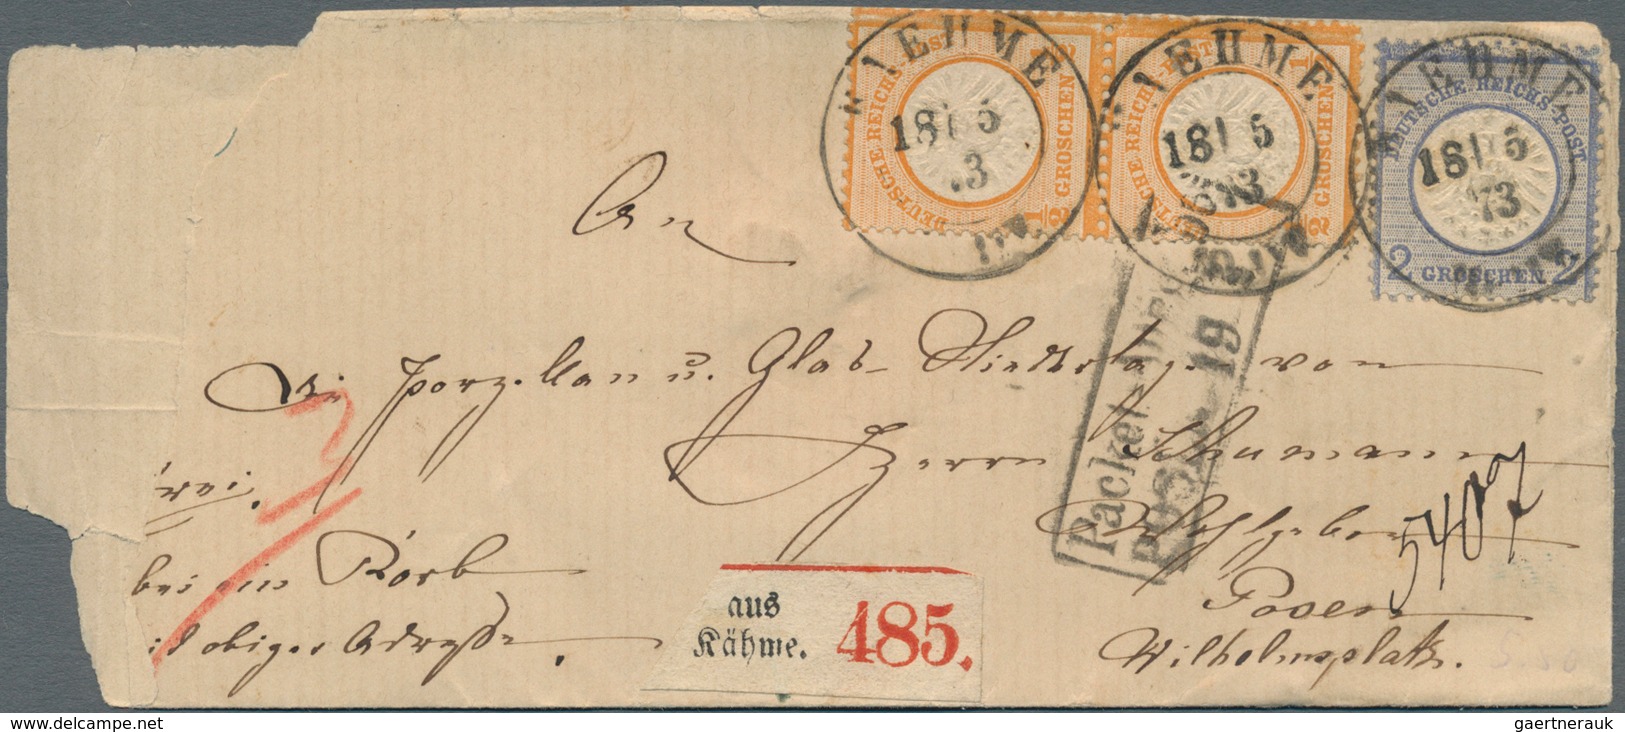 KAEHME
18 5
73
KAEHME
18 5
73
KAEHME
18 5
73
DEUTSCHE REICHS-POST
1/2 GROSCHEN 1/2
DEUTSCHE REICHS-POST
1/2 GROSCHEN 1/2
DEUTSCHE REICHS-POST
2 GROSCHEN 2
An
die Porzellan u. Glas- Niederlage von
Herrn Schumann
Wohlgeboren
Posen
Wilhelmsplatz.
frei.
bei ein Korb
obiger Adresse.
Packet
Posen 19
5407
aus
Kähme. 485.
gaertnerauk